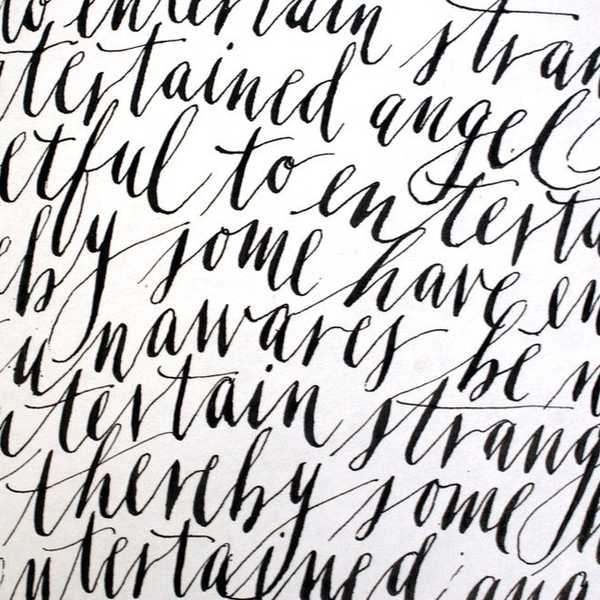 to entertain stran
tertained angel
etful to en terta
eby some have en
unawares be n
ntertain strang
thereby some h
ntertained ang